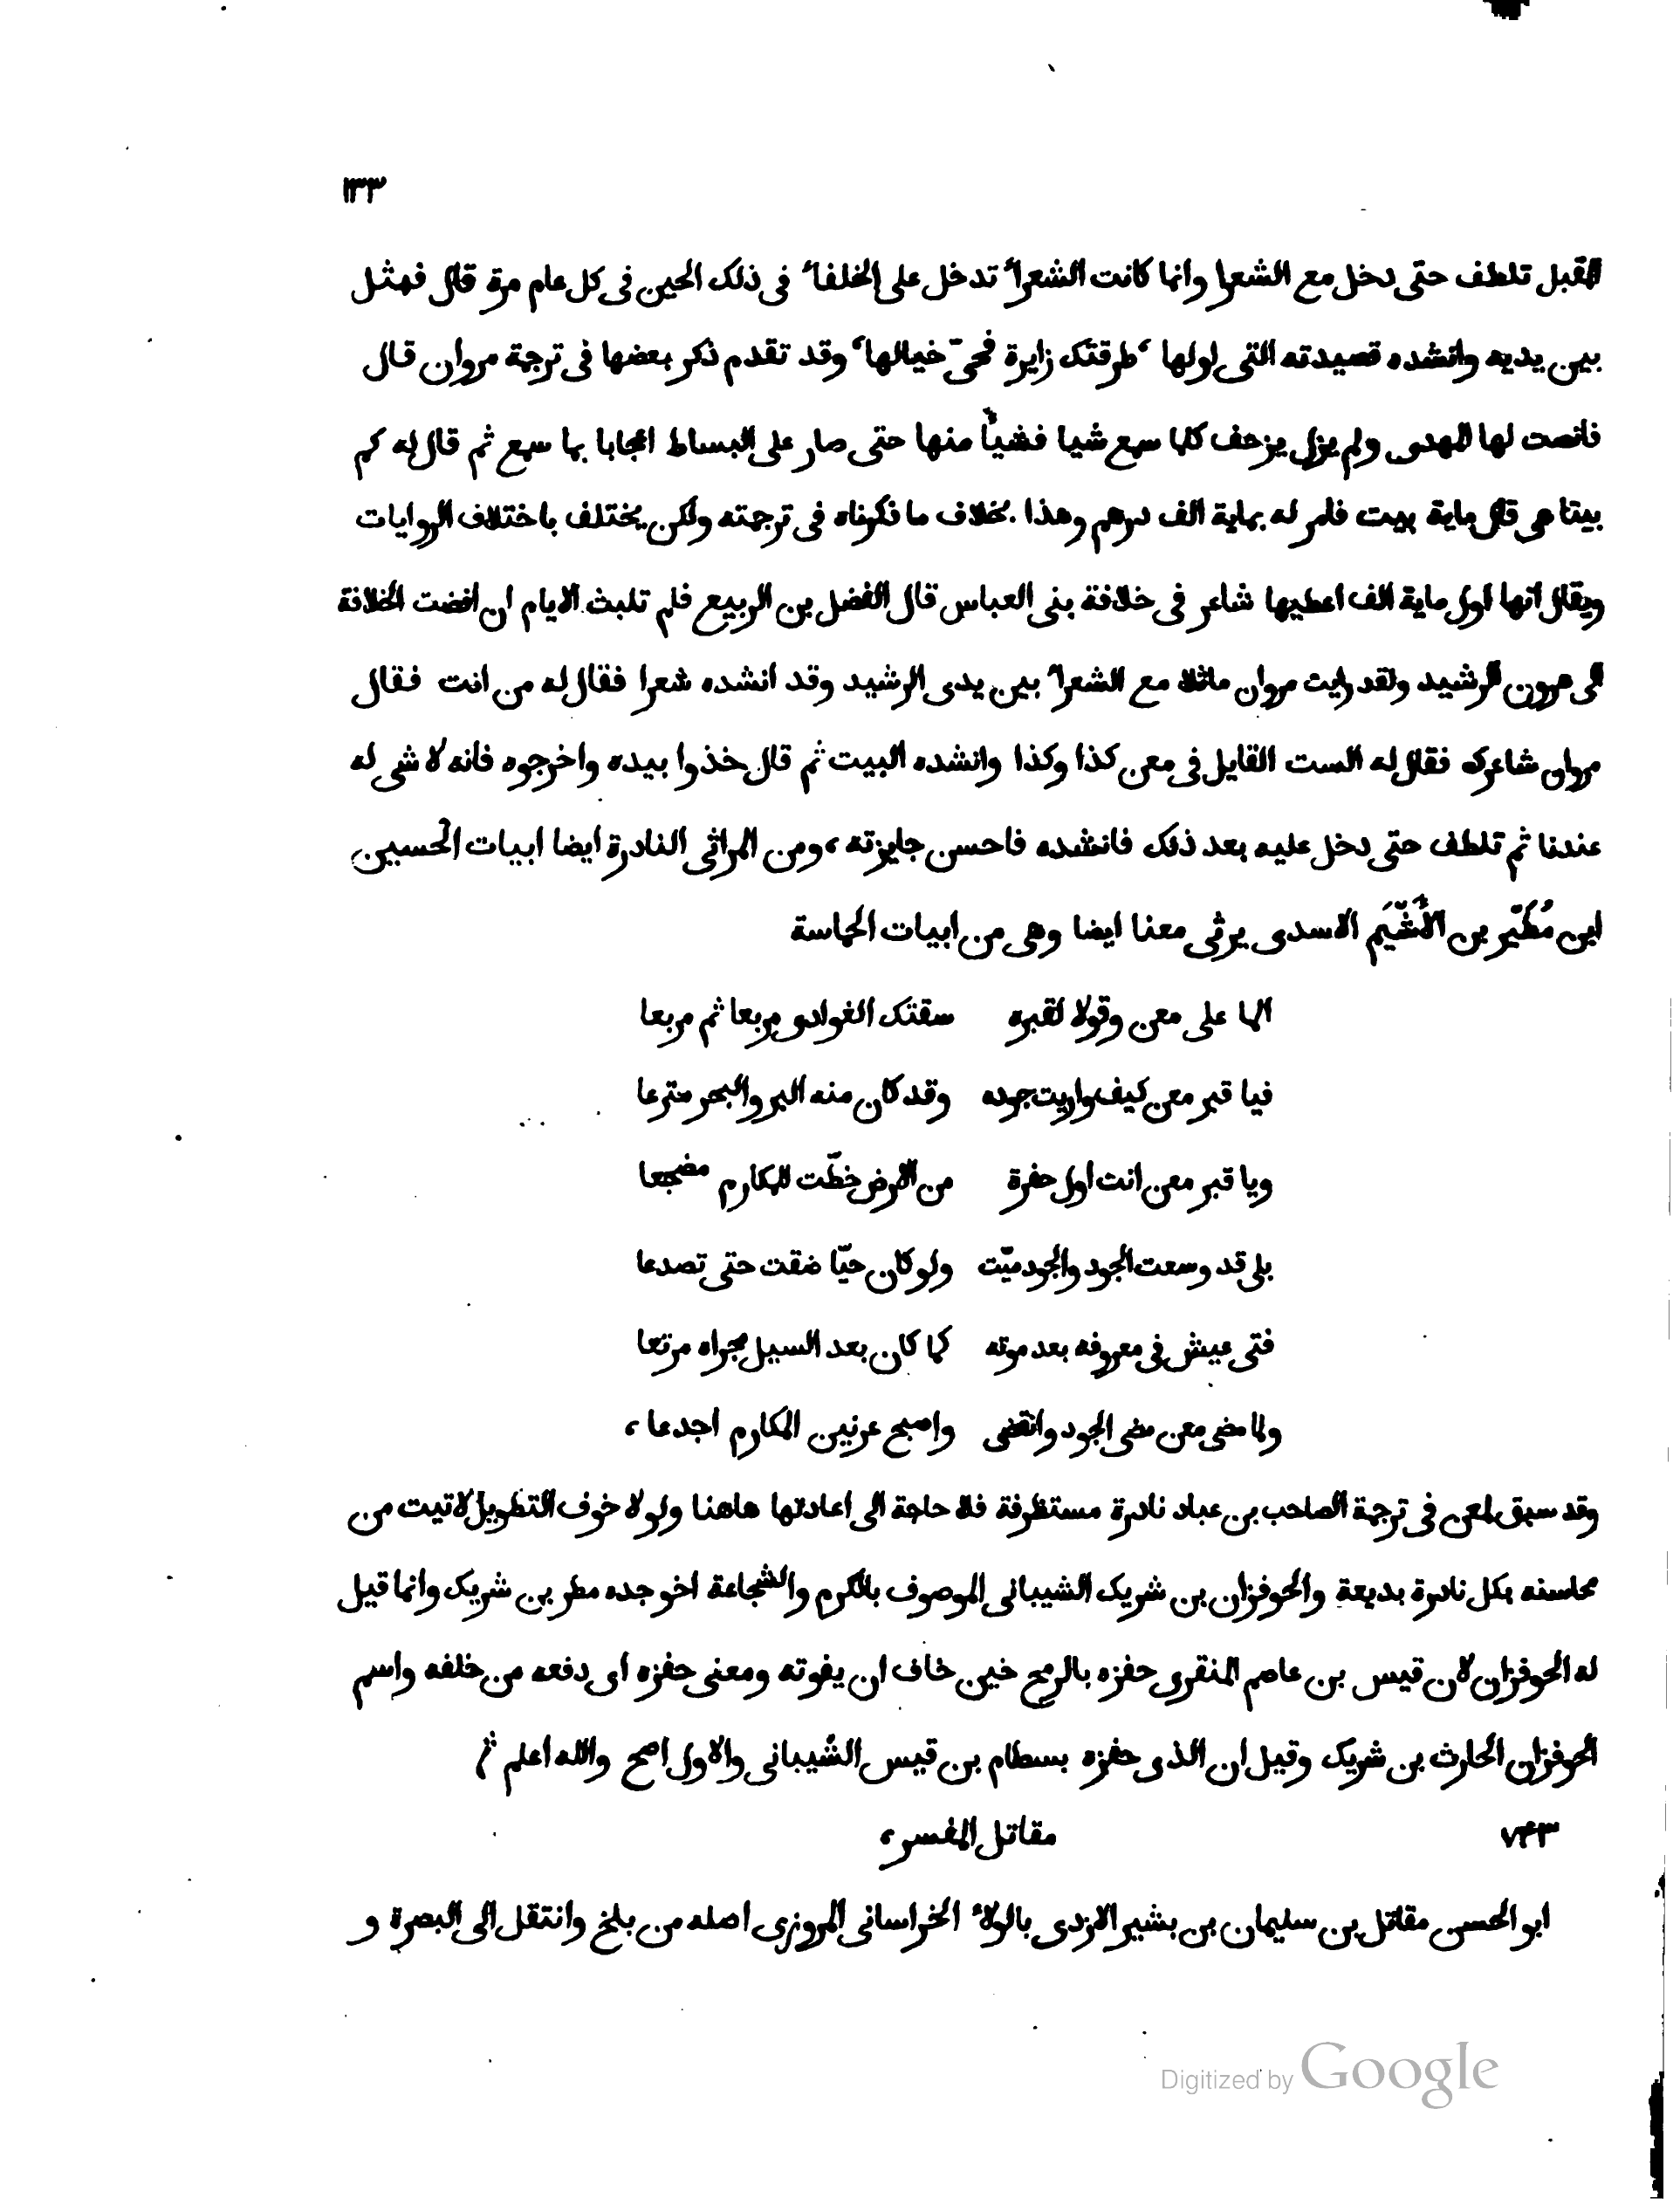 ١٣٣
المقبل تلطف حتى دخل مع الشعرا وانما كانت الشعراء تدخل على الخلفاء فى ذلك الحين فى كل عام مرة قال فمثل
بين يديه وانشده قصيدته التى اولها، طرقتك زايرة فحىّ خيالها، وقد تقدم ذكر بعضها فى ترجمة مروان قال
فانصت لها المهدى ولم يزل يزحف كلما سمع شيا فشياً منها حتى صار على البساط اعجابا بما سمع ثم قال له كم
بيتا هى قال ماية بيت فامر له بماية الف درهم وهذا بخلاف ما ذكرناه فى ترجمته ولكن يختلف باختلاف الروايات
ويقال انها اول ماية الف اعطيها شاعر فى خلافة بنى العباس قال الفضل بن الربيع فلم تلبث الايام ان افضت الخلافة
الى هرون الرشيد ولقد رايت مروان ماثلا مع الشعراء بين يدى الرشيد وقد انشده شعرا فقال له من انت فقال
مروان شاعرك فقال له الست القايل فى معن كذا وكذا وانشده البيت ثم قال خذوا بيده واخرجوه فانه لا شى له
عندنا ثم تلطف حتى دخل عليه بعد ذلك فانشده فاحسن جايزته، ومن المراثى النادرة ايضا ابيات الحسين
ابن مُطَيّر بن الأُشَيّم الاسدى يرثى معنا ايضا وهى من ابيات الحماسة
الما على معن وقولا لقبره سقتك الغوادى مربعا ثم مربعا
فيا قبر معن كيف واريت جوده وقد كان منه البر والبحر مترعا
ويا قبر معن انت اول حفرة من الارض خطّت للمكارم مضجعا
بلى قد وسعت الجود والجود ميّت ولو كان حيّا ضقت حتى تصدعا
فتى عيش فى معروفه بعد موته كما كان بعد السيل مجراه مرتعا
ولما مضى معن مضى الجود وانقضى واصبح عرنين المكارم اجدعا،
وقد سبق لمعن فى ترجمة الصاحب بن عباد نادرة مستظرفة فلا حاجة الى اعادتها هاهنا ولولا خوف التطويل لاتيت من
محاسنه بكل نادرة بديعة والحوفزان بن شريك الشيبانى الموصوف بالكرم والشجاعة اخو جده مطر بن شريك وانما قيل
له الحوفزان لان قيس بن عاصم المنقرى حفزه بالرمح خين خاف ان يفوته ومعنى حفزه اى دفعه من خلفه واسم
الحوفزان الحارث بن شريك وقيل ان الذى حفزه بسطام بن قيس الشيبانى والاول اصح والله اعلم
٧٤٣ مقاتل المفسر،
ابو الحسن مقاتل بن سليمان بن بشير الازدى بالولاء الخراسانى المروزى اصله من بلخ وانتقل الى البصرة و
Digitized by Google